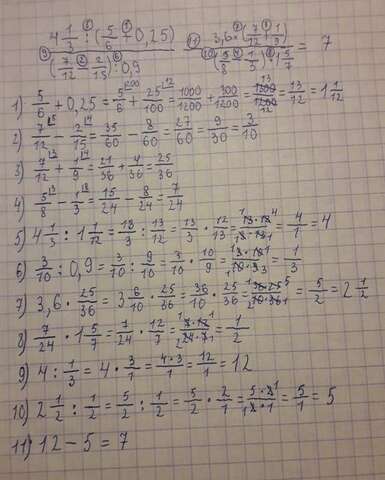 4 1/3 : (5/6 + 0,25) / (7/12 - 2/15) : 0,9 - 3,6 · (7/12 + 1/9) / (5/8 - 1/3) · 1 5/7 = 7
1) 5/6 + 0,25 = 5/6 + 25/100 = 1000/1200 + 300/1200 = 1300/1200 = 13/12 = 1 1/12
2) 7/12 - 2/15 = 35/60 - 8/60 = 27/60 = 9/30 = 3/10
3) 7/12 + 1/9 = 21/36 + 4/36 = 25/36
4) 5/8 - 1/3 = 15/24 - 8/24 = 7/24
5) 4 1/3 : 1 1/12 = 13/3 : 13/12 = 13/3 · 12/13 = 13·12/3·13 = 4/1 = 4
6) 3/10 : 0,9 = 3/10 : 9/10 = 3/10 · 10/9 = 3·10/10·9 = 1/3
7) 3,6 · 25/36 = 3 6/10 · 25/36 = 36/10 · 25/36 = 36·25/10·36 = 5/2 = 2 1/2
8) 7/24 · 1 5/7 = 7/24 · 12/7 = 7·12/24·7 = 1/2
9) 4 : 1/3 = 4 · 3/1 = 4·3/1 = 12/1 = 12
10) 2 1/2 : 1/2 = 5/2 : 1/2 = 5/2 · 2/1 = 5·2/2·1 = 5/1 = 5
11) 12 - 5 = 7